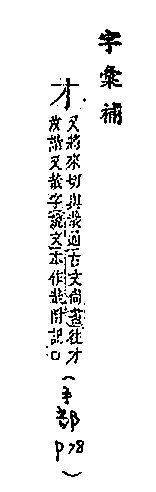 字彙補
才
又將來切與哉通古文尚書往才
汝諧又 字說文本作
(手部 p78)